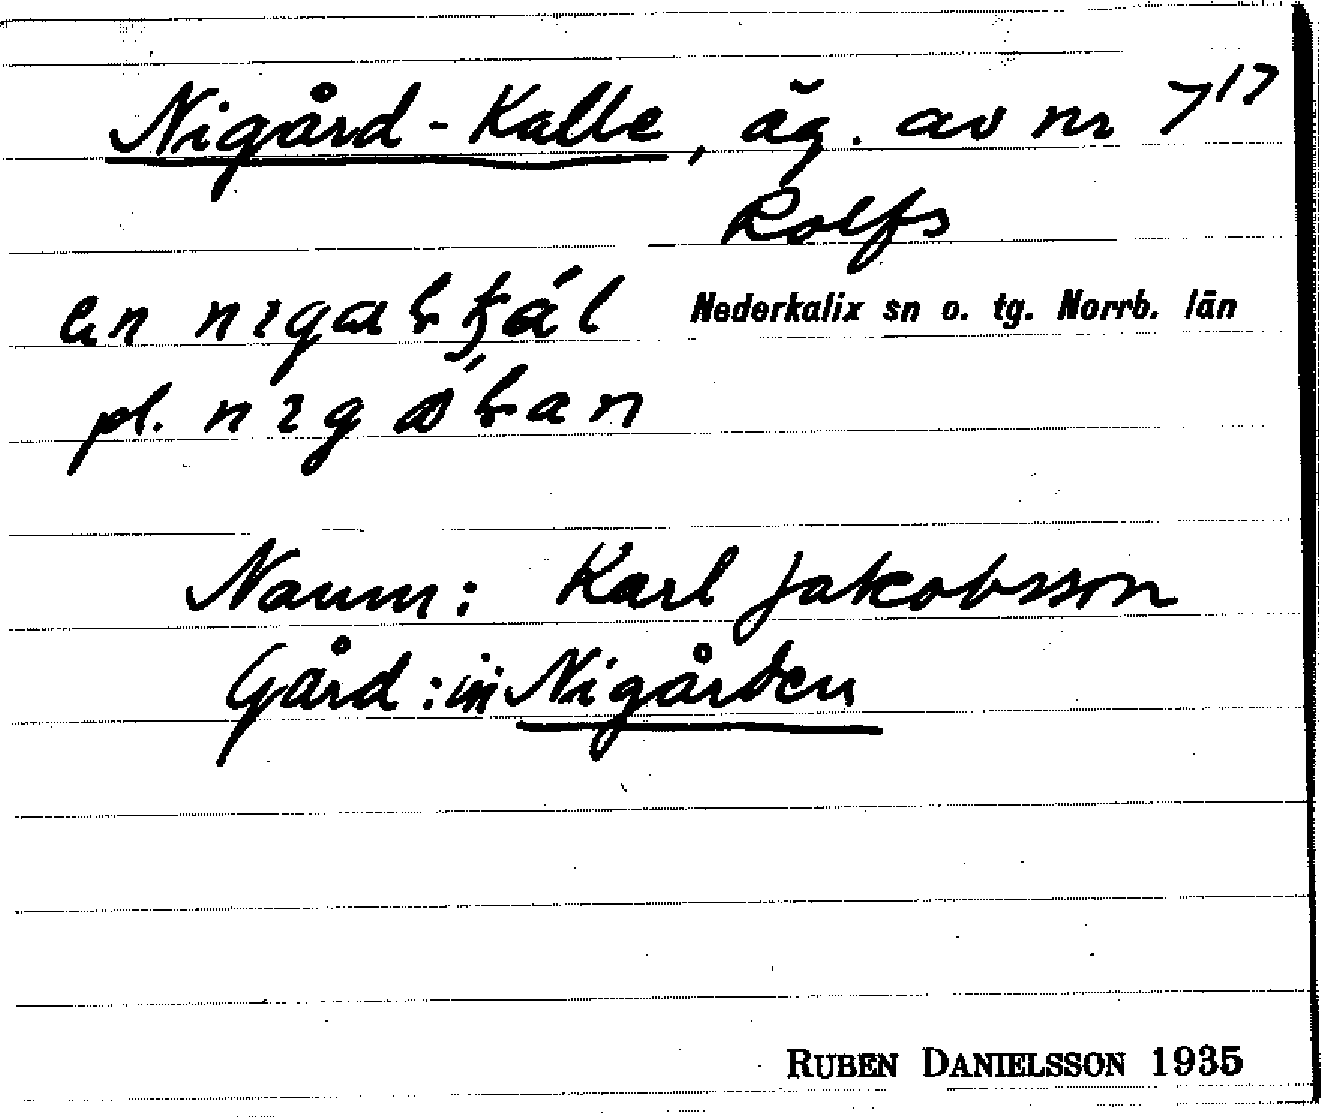 Nigård-Kalle, äg. av nr 7¹⁷
Rolfs
Nederkalix sn o. tg. Norrb. län
pl.
Namn: Karl Jakobsson
Gård: i Nigården
RUBEN DANIELSSON 1935